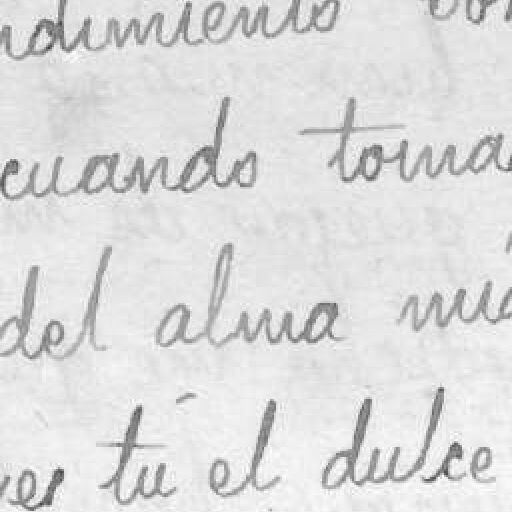 ndimiento
cuando toma
del alma mía
tú el dulce